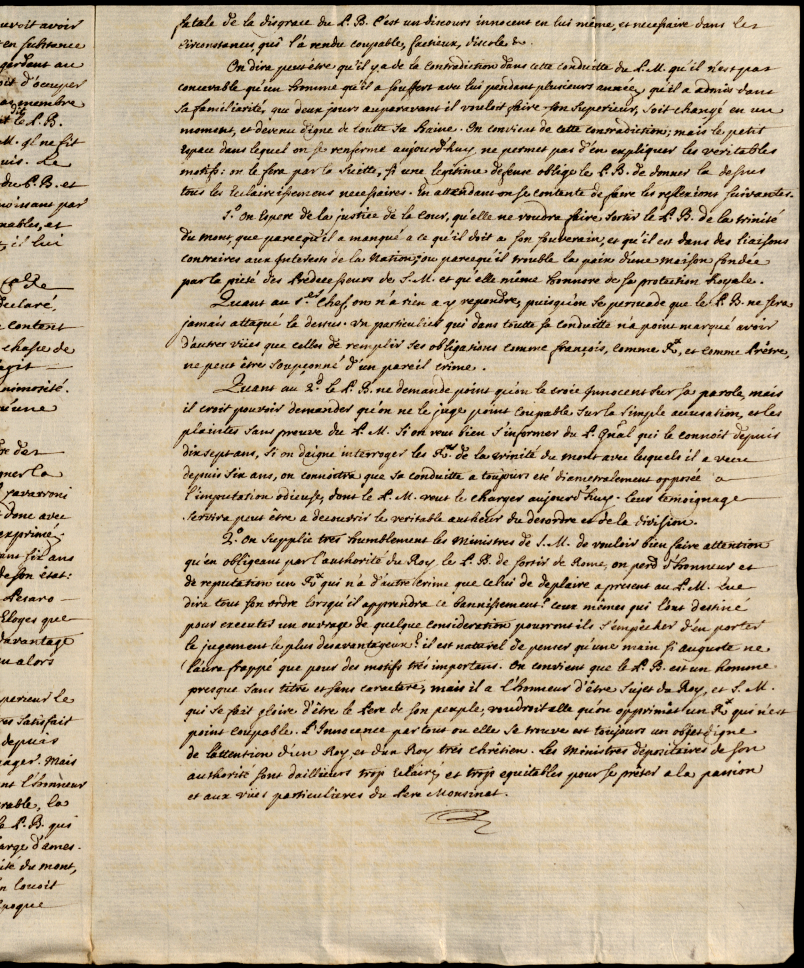 uvoit avoir
en substance
gardant au
oit d'occuper
membre
le P. B.
M. ql ne fit
uis. Le
du P. B. et
noissant par
nables, et
il lui
declaré,
content
chose de
agit
nimosité.
qu'une
mer la
pavarroni
donc avec
exprimé;
ant six ans
de son état:
Pesaro
Eloges que
davantage
u alors
perieur le
res satisfait
depuis
nager. Mais
nt l'honneur
rable, la
le P. B. qui
arge d'ames.
ité du mont,
n louoit
Epoque
fatale de la disgrace du P. B. C'est un discours innocent en lui même, et necessaire dans les
circonstances, qu'il l'a rendu coupable, factieux, discole &.
On dira peut être qu'il y a de la contradiction dans cette conduitte du P. M. qu'il n'est pas
concevable qu'un homme qu'il a souffert avec lui pendant plusieurs années, qu'il a admis dans
sa familiarité, que deux jours auparavant il vouloit faire son superieur, soit changé en un
moment, et devenu digne de toutte sa haine. On convient de cette contradiction; mais le petit
espace dans lequel on se renferme aujourd'huy, ne permet pas d'en expliquer les veritables
motifs: on le fera par la suitte, si une legitime defense oblige le P. B. de donner la dessus
tous les eclaircissemens necessaires. En attendant on se contente de faire les reflexions suivantes.
1.º On espere de la justice de la Cour, qu'elle ne voudra faire sortir le P. B. de la trinité
du mont, que parcequ'il a manqué a ce qu'il doit a son souverain, et qu'il est dans des liaisons
contraires aux Interests de la Nation; ou parcequ'il trouble la paix d'une maison fondée
par la pieté des Predecesseurs de S. M. et qu'elle même honnore de sa protection Royale.
Quant au 1.er Chef, on n'a rien a y repondre, puisqu'on se persuade que le P. B. ne sera
jamais attaqué la dessus. Un particulier qui dans toutte sa conduitte n'a point marqué avoir
d'autres vües que celles de remplir ses obligations comme françois, comme Rx, et comme Prêtre,
ne peut être soupçonné d'un pareil crime.
Quant au 2.d le P. B. ne demande point qu'on le croie Innocent sur sa parole, mais
il croit pouvoir demander qu'on ne le juge point coupable sur la simple accusation, et les
plaintes sans preuve du P. M. Si on veut bien s'informer du P. Gnal qui le connoit depuis
dix sept ans, si on daigne interroger les Rx de la trinité du mont avec lesquels il a vecu
depuis six ans, on connoitra que sa conduitte a toujours eté diametralement opposée a
l'imputation odieuse, dont le P. M. veut le charger aujourd'huy. leur temoignage
servira peut être a decouvrir le veritable autheur du desordre et de la division.
2.º On supplie tres humblement les Ministres de S. M. de vouloir bien faire attention
qu'en obligeant par l'authorité du Roy, le P. B. de sortir de Rome, on perd d'honneur et
de reputation un Rx qui n'a d'autre crime que celui de deplaire a present au P. M. Que
dira tout son ordre lorsqu'il apprendra ce bannissement? ceux mêmes qui l'ont destiné
pour executer un ouvrage de quelque consideration pourront ils s'empêcher d'en porter
le jugement le plus desavantageux? il est naturel de penser qu'une main si auguste ne
l'aura frappé que pour des motifs trés importens. On convient que le P. B. est un homme
presque sans titre et sans caractere, mais il a l'honneur d'être sujet du Roy, et S. M.
qui se fait gloire d'être le Pere de son peuple, voudroit elle qu'on opprimât un Rx qui n'est
point coupable. L'Innocence par tout ou elle se trouve est toujours un objet digne
de l'attention d'un Roy, et d'un Roy trés chrétien. Les Ministres dépositaires de son
authorité sont d'ailleurs trop eclairés et trop equitables pour se prêter a la passion
et aux vües particulieres du Pere Monsinat.